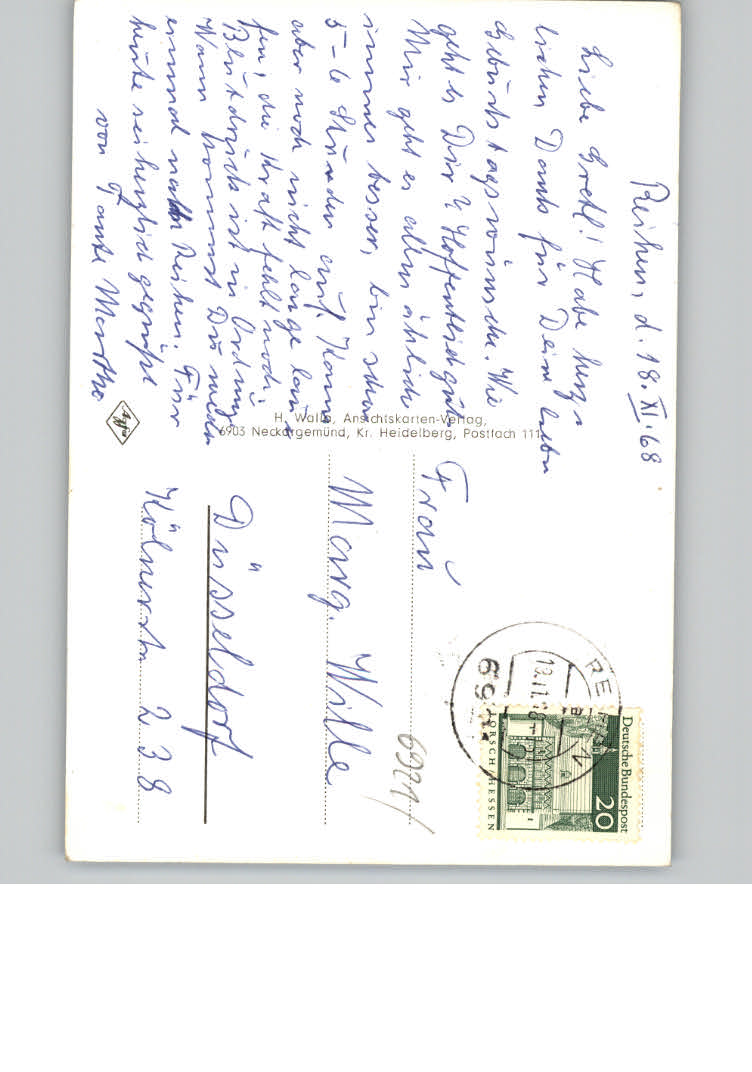 Reihen, d. 18. XI. 68
Liebe Gretl! Habe herz-
lichen Dank für Deine lieben
Geburtstagswünsche. Wie
geht es Dir? Hoffentlich gut.
Mir geht es allm ählich
immer besser, bin schon
5-6 Stunden auf. Kann
aber noch nicht lange lau-
fen, die Kraft fehlt noch.
Blutdruck ist in Ordnung
Wann kommst Du wieder
einmal nach Reihen. Für
heute sei herzlich gegrüßt
von Tante Martha
Agfa
H. Walla, Ansichtskarten-Verlag,
6903 Neckargemünd, Kr. Heidelberg, Postfach 111
Frau
Marg. Wille
Düsseldorf
Kölnerstr. 238
6921/
REIHEN
6921
Deutsche Bundespost
20
LORSCH/HESSEN